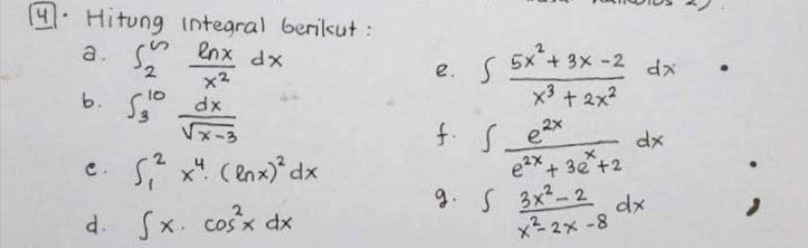 4. Hitung integral berikut :
a. ∫₂^∞ ln x / x² dx
b. ∫₃¹⁰ dx / √(x-3)
c. ∫₁² x⁴. (ln x)² dx
d. ∫ x. cos²x dx
e. ∫ (5x² + 3x - 2) / (x³ + 2x²) dx
f. ∫ e²ˣ / (e²ˣ + 3eˣ + 2) dx
g. ∫ (3x² - 2) / (x² - 2x - 8) dx